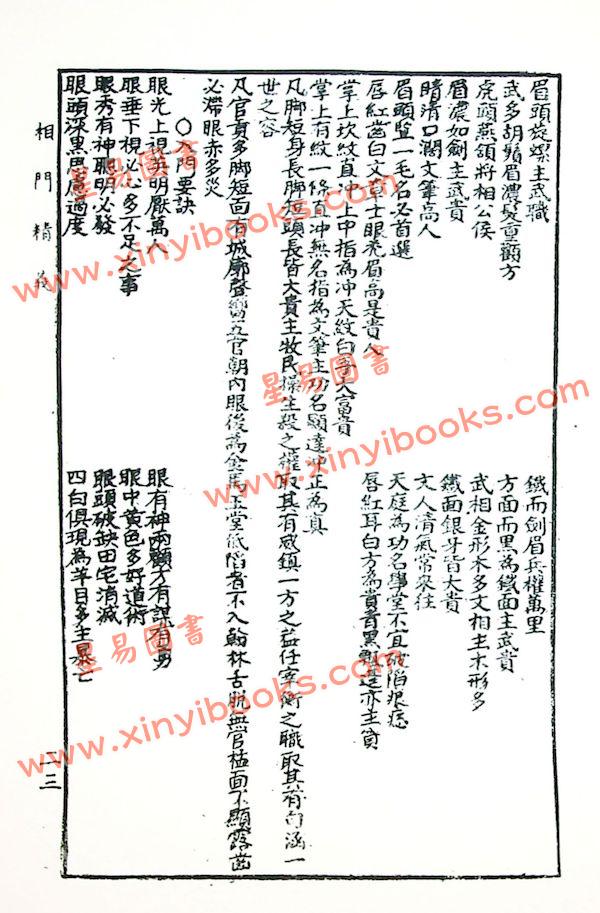 眉頭旋螺主武職
鐵面劍眉兵權萬里
武多胡鬚眉濃髮重顴方
方面而黑為鐵面主武貴
虎頭燕頷將相公侯
武相金形木多文相主木形多
眉濃如劍主武貴
鐵面銀牙皆大貴
睛清口濶文筆高人
文人清氣常來往
眉頭豎一毛名必首選
天庭為功名學堂不宜破陷痕痣
唇紅齒白文章士眼秃眉高是貴人
唇紅耳白方為貴青黑飄逢亦主貧
掌上坎紋直冲上中指為冲天紋白手大富貴
掌上有紋一條直冲無名指為文筆主功名顯達冲正為真
凡脚短身長脚短頭長皆大貴主牧民操生殺之權取其有威鎮一方之益任宰衡之職取其有向涵一
世之容
凡官貴多脚短面有城廓聲響五官朝內眼後為金馬玉堂低陷者不入翰林舌脫無官植面不顯露齒
必滯眼赤多災
〇入門要訣
眼光上視英明厭萬人
眼有神兩顴方有謀有勇
眼垂下視必心多不足之事
眼中黄色多好道術
眼秀有神聰明必發
眼頭破缺田宅消滅
眼頭深黑思慮過度
四白俱現為羊目多主暴亡
相門精義
二三
星易圖書
www.xinyibooks.com
星易圖書
www.xinyibooks.com
www.xinyibooks.com
星易圖書
www.xinyibooks.com